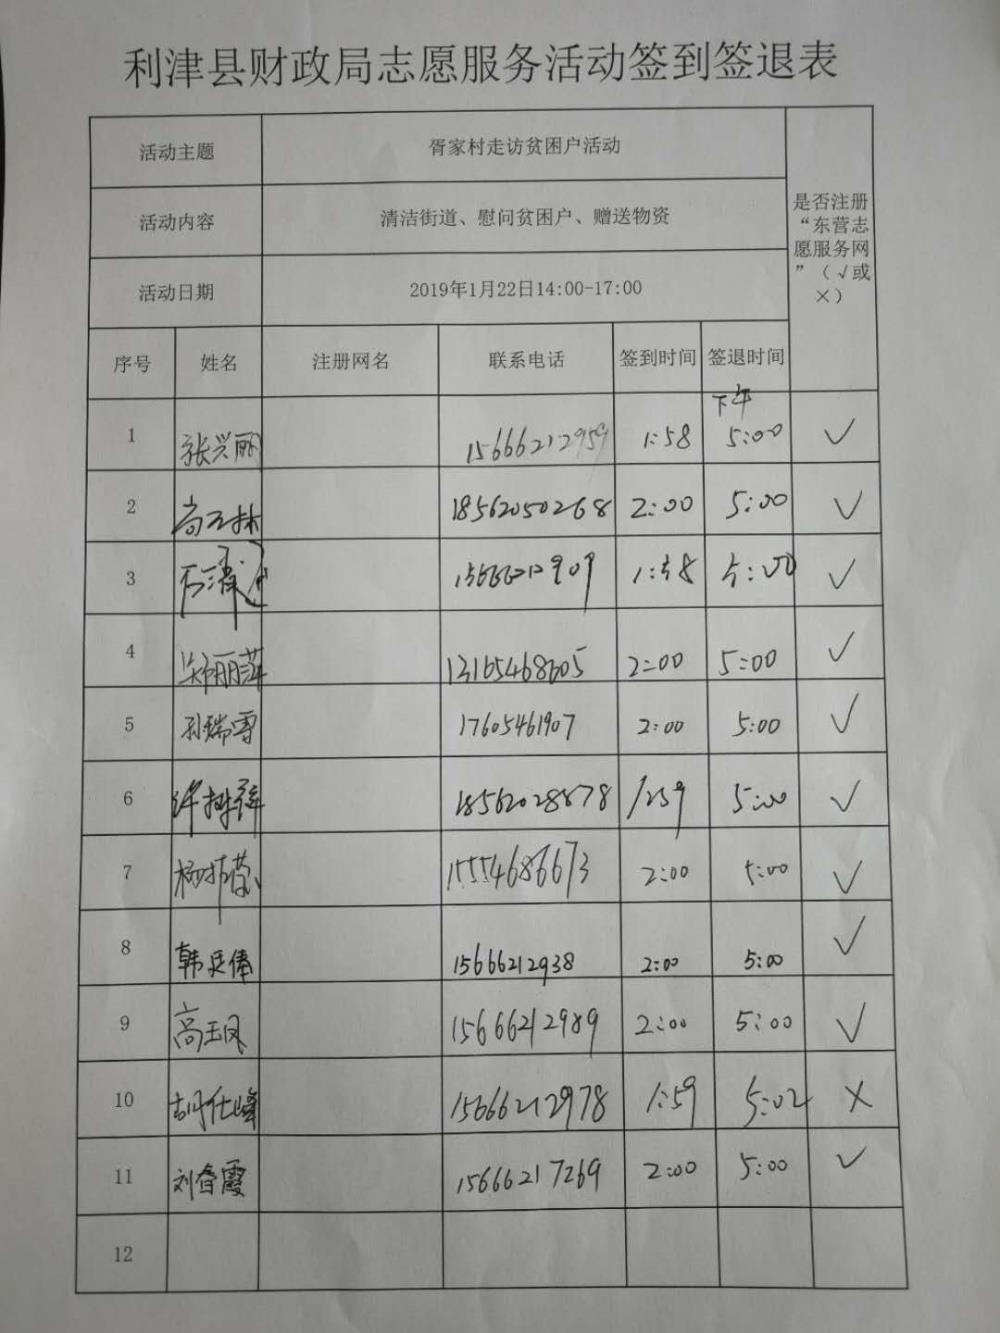 利津县财政局志愿服务活动签到签退表
活动主题 胥家村走访贫困户活动
活动内容 清洁街道、慰问贫困户、赠送物资
活动日期 2019年1月22日14:00-17:00
是否注册
“东营志
愿服务网
”（√或
×）
序号 姓名 注册网名 联系电话 签到时间 签退时间
下午
1 张兴丽 15666212959 1:58 5:00 √
2 18562050268 2:00 5:00 √
3 15666212909 1:58 5:00 √
4 郑丽萍 13165468605 2:00 5:00 √
5 孙瑞雪 17605461907 2:00 5:00 √
6 1:59 5:00 √
7 15554686673 2:00 5:00 √
8 韩廷俸 15666212938 2:00 5:00 √
9 高玉凤 15666212989 2:00 5:00 √
10 胡仕峰 15666212978 1:59 5:02 ×
11 刘春霞 15666217269 2:00 5:00 √
12